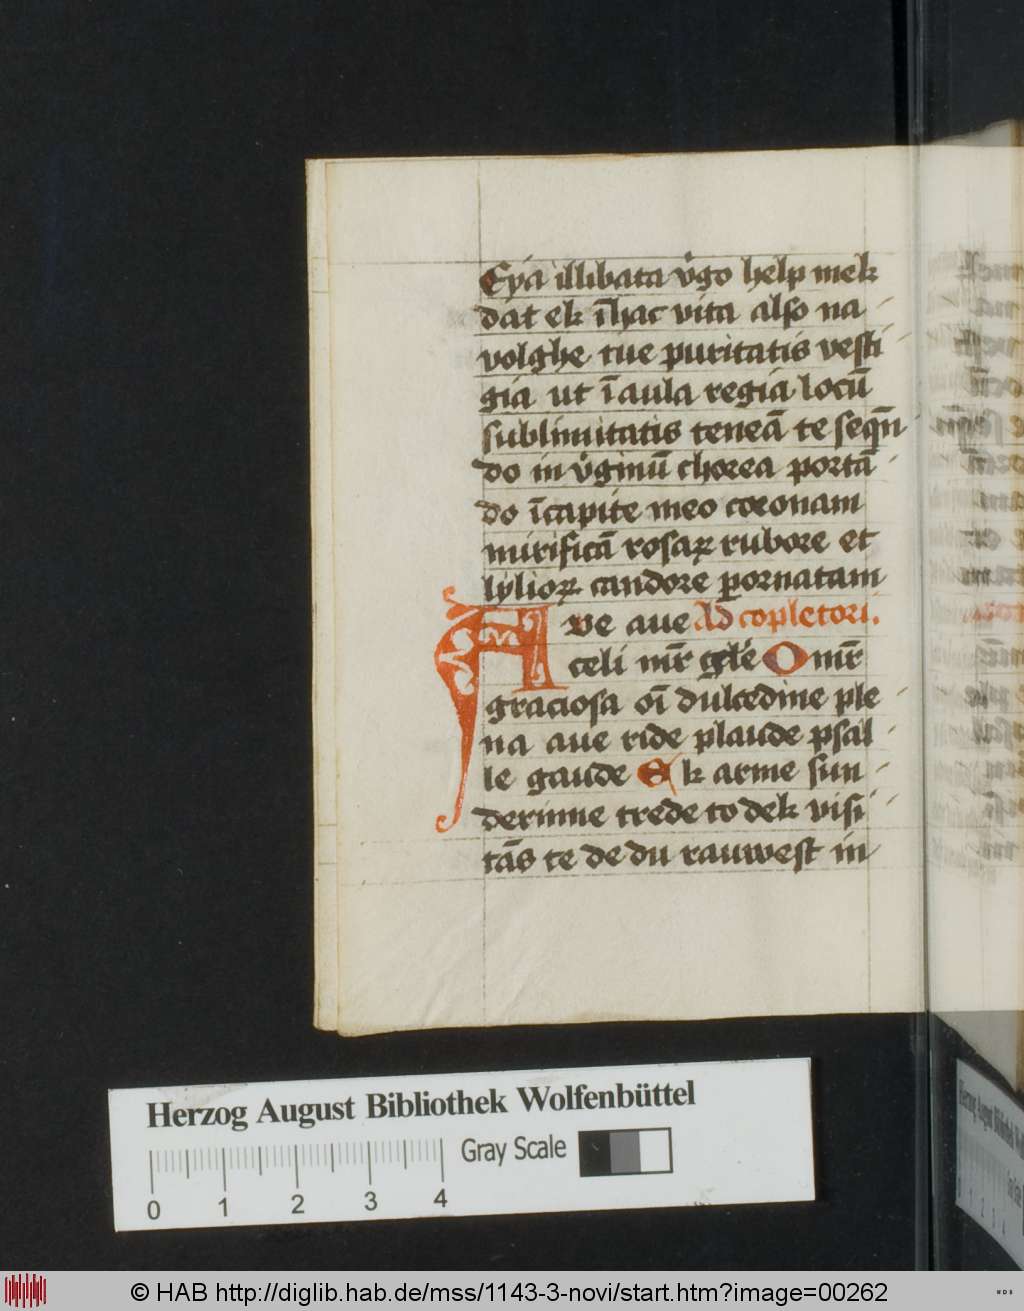 Eya illibata v̊go help mek
dat ek ī hac vita also na
volghe tue puritatis vesti
gia ut ī aula regia locū
sublimitatis teneā te seq̄n
do in v̊ginū chorea portā
do ī capite meo coronam
mirificā rosaꝝ rubore et
lylioꝝ candore ꝑornatam
Ave aue Ad cōpletori.
celi mr̄ gl̄e O mr̄
graciosa oī dulcedine ple
na aue ride plaude psal
le gaude Ek arme sun
derinne trede to dek visi
tās te de du rauwest in
Herzog August Bibliothek Wolfenbüttel
Gray Scale
0 1 2 3 4
© HAB http://diglib.hab.de/mss/1143-3-novi/start.htm?image=00262